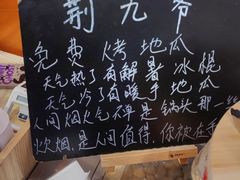 荆九爷
免费 烤地瓜
天气热了有解暑冰棍
天气冷了有暖手地瓜
人间烟火气不只是锅块那一些
炊烟.是人间值得.你被在乎